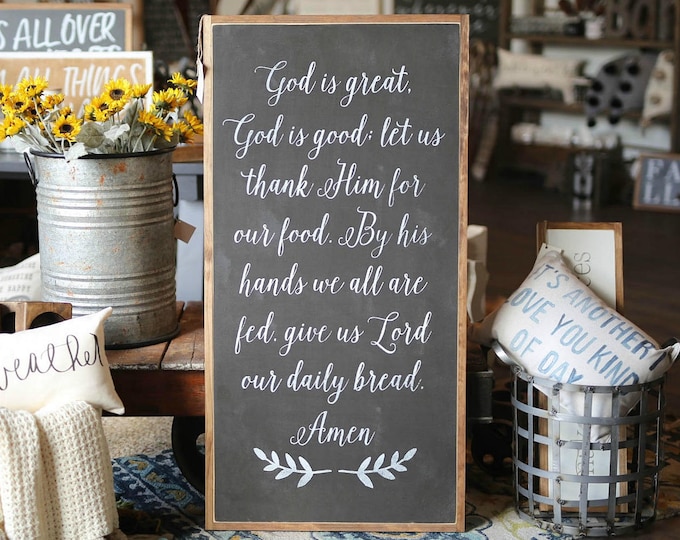 God is great,
God is good; let us
thank Him for
our food. By his
hands we all are
fed. give us Lord
our daily bread.
Amen
S ALL OVER
ALL THINGS
weather
IT'S ANOTHER
LOVE YOU KIND
OF DAY
FA
LL